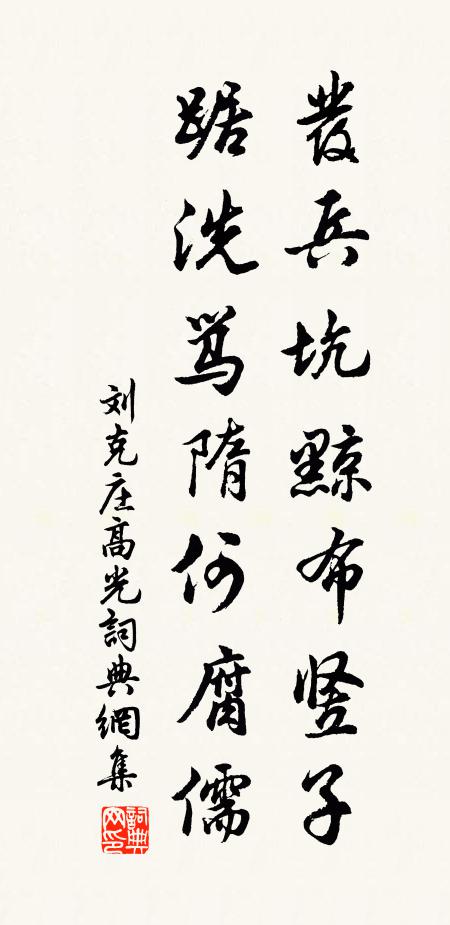 發兵坑黥布竖子
踞洗骂隋何腐儒
刘克庄高光詞典網集
詞典网印